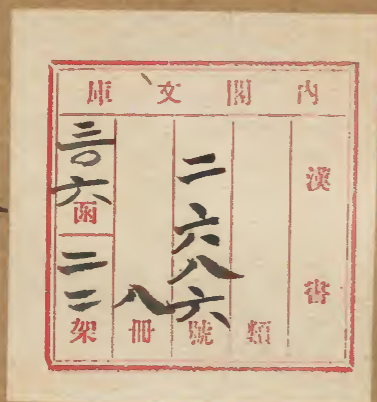 内閣文庫
漢書
類
二六八六號
八冊
三〇六函
二二架